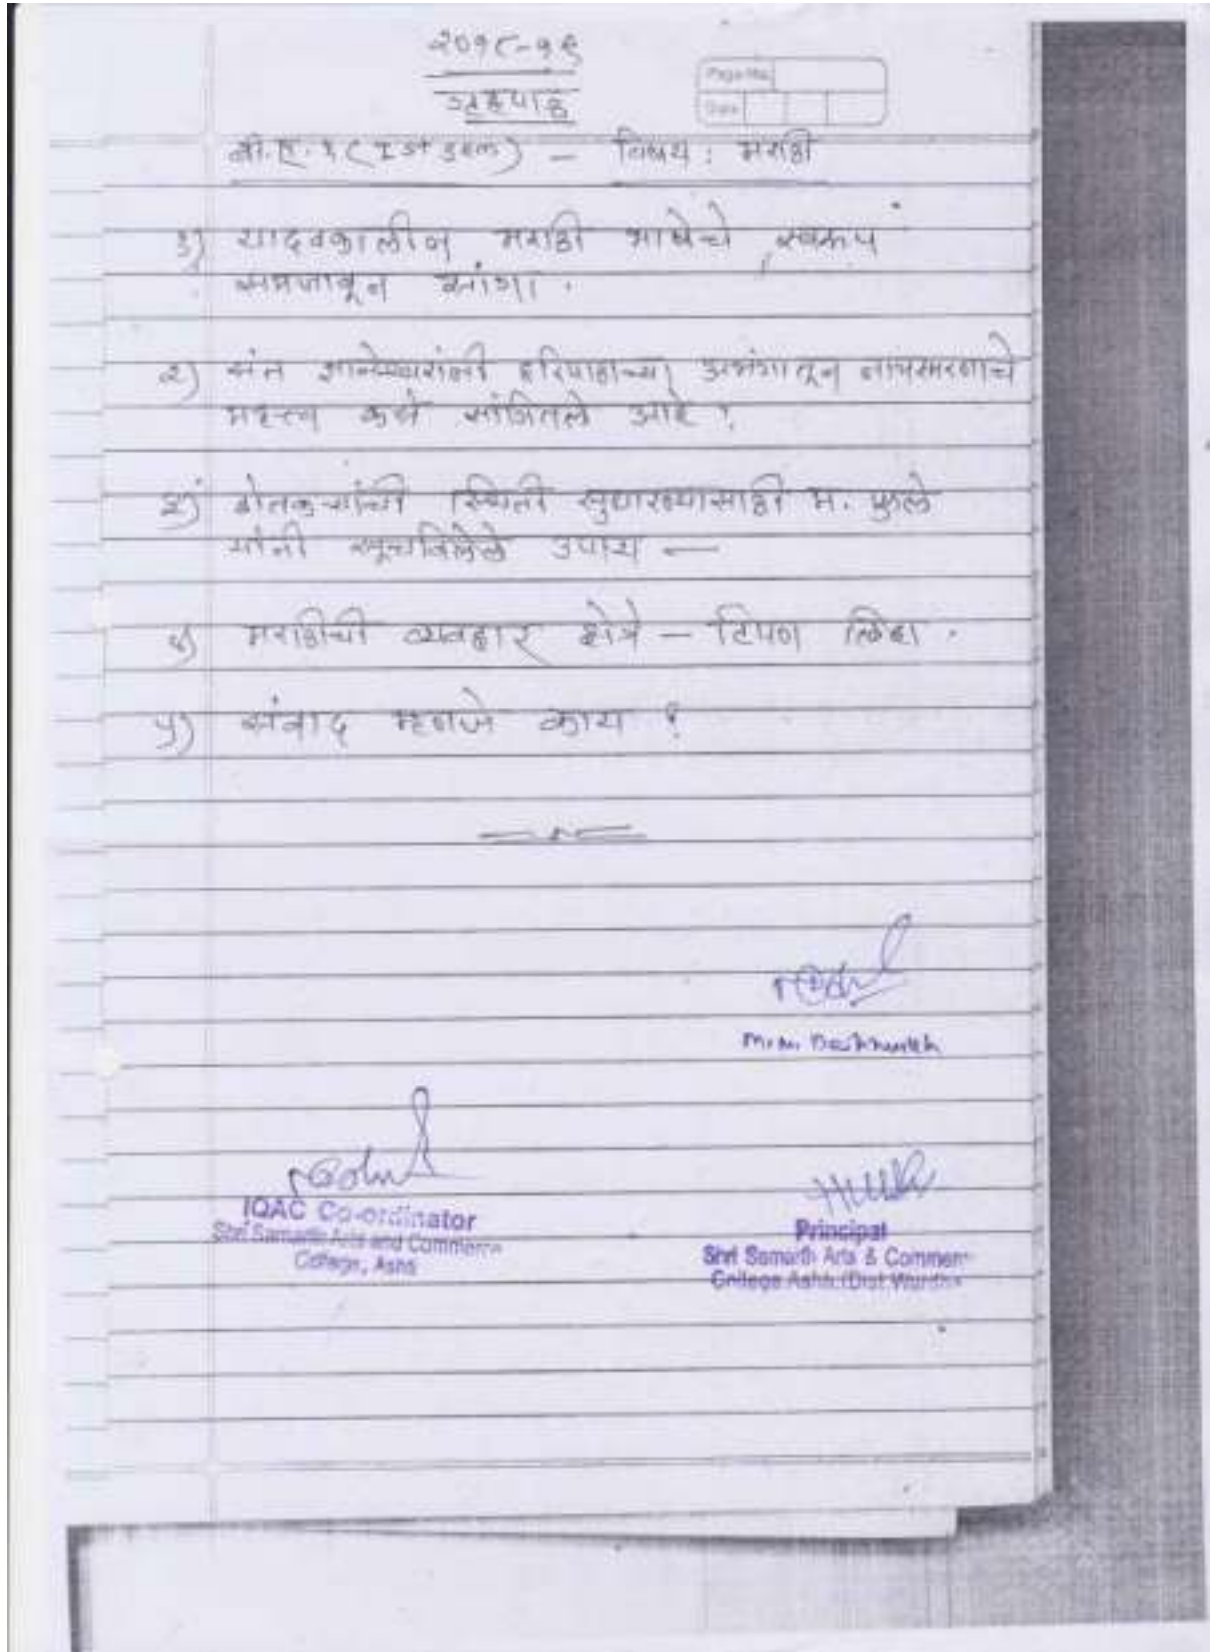 २०१८-१९
गृहपाठ
Page No.
Date
बी.ए. १ (Ist sem) - विषय : मराठी
१) यादवकालीन मराठी भाषेचे स्वरूप
समजावून सांगा .
२) संत ज्ञानेश्वरांनी हरिपाठाच्या अभंगातून नामस्मरणाचे
महत्त्व कसे सांगितले आहे ?
३) शेतकऱ्यांची स्थिती सुधारण्यासाठी म. फुले
यांनी सूचविलेले उपाय —
४) मराठीची व्यवहार क्षेत्रे - टिपण लिहा .
५) संवाद म्हणजे काय ?
M.M. Deshmukh
IQAC Co-ordinator
Shri Samarth Arts and Commerce
College, Ashti
Principal
Shri Samarth Arts & Commerc
College Ashti (Dist. Wardha